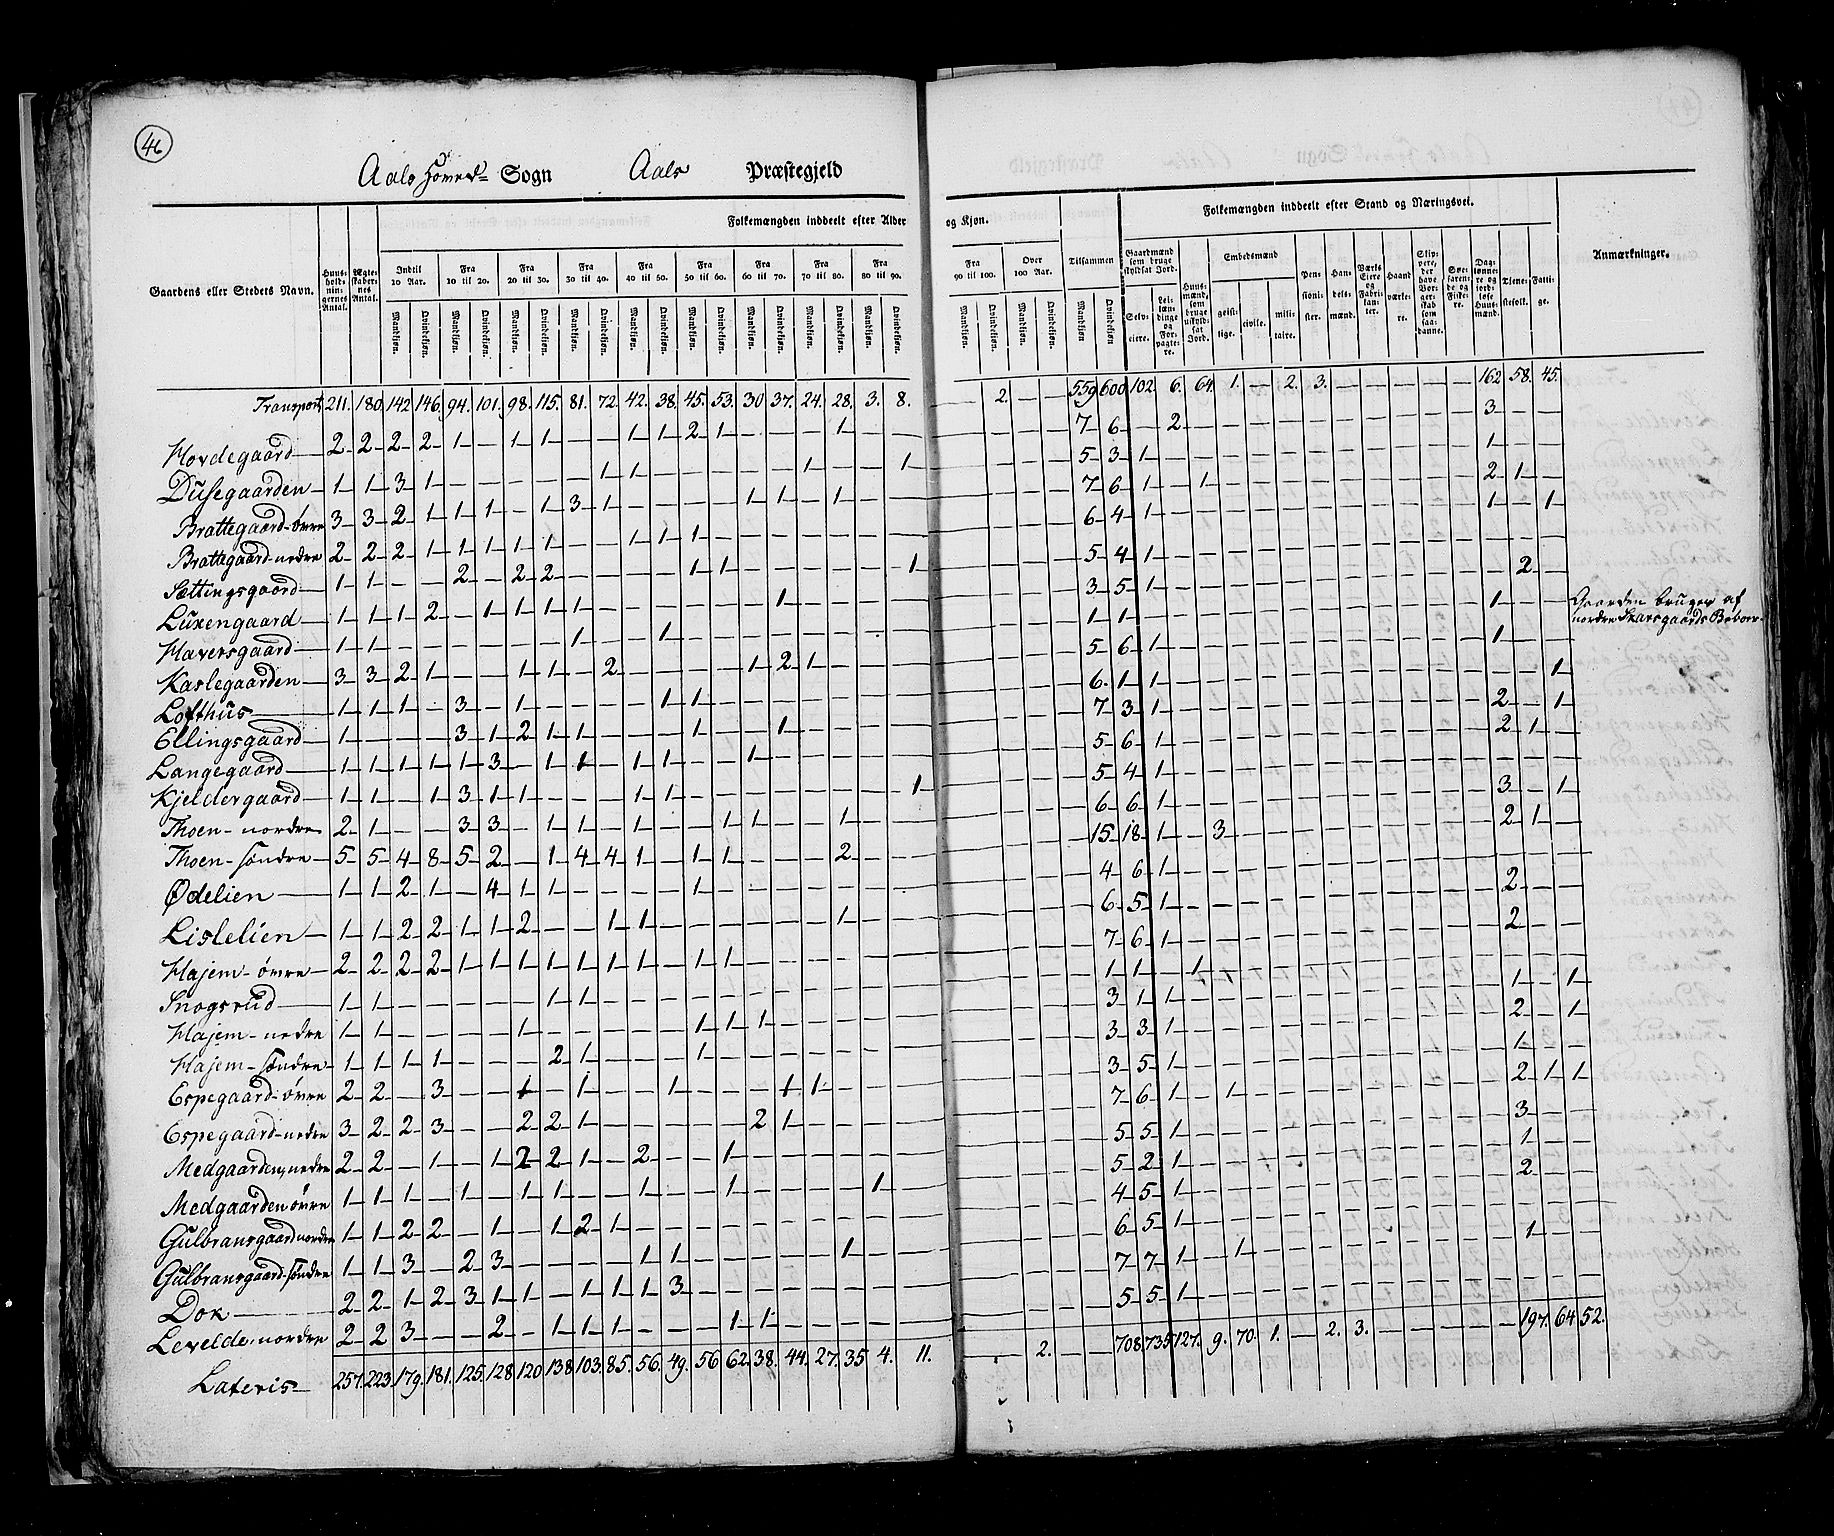 46
Aals Hoved= Sogn Aals Præstegjeld
Gaardens eller Stedets Navn. Huus-holdnin-gernes Antal. Ægte-skaber-nes Antal. Folkemængden inddeelt efter Alder og Kjøn. Tilsammen Folkemængden inddeelt efter Stand og Næringsvei. Anmærkninger.
Indtil 10 Aar. Fra 10 til 20. Fra 20 til 30. Fra 30 til 40. Fra 40 til 50. Fra 50 til 60. Fra 60 til 70. Fra 70 til 80. Fra 80 til 90. Fra 90 til 100. Over 100 Aar.
Gaardmænd som bruge skyldsat Jord. Huus-mænd, som bruge uskyld-sat Jord. Embedsmænd Pen-sioni-ster. Han-dels-mænd. Værks Eiere og Fabri-kan-ter. Haand-værke-re. Daglønne-re og jord-løse Huus-mænd. Tjene-stefolk. Fatti-ge.
Mandkjøn. Qvindekjøn. Selv-eiere. Lei-læn-dinge og For-pagte-re. geist-lige. civile. mili-taire.
Transport 211. 180. 142. 146. 94. 101. 98. 115. 81. 72. 42. 38. 45. 53. 30 37. 24. 28. 3. 8. — 2. — — 559 600 102. 6. 64. 1. — 2. 3. — — — — — 162 58. 45.
Hovdegaard 2 2 2 2 1 — 1 1 — — 1 1 2 1 — — — 1 — — — — — — 7 6 — 2 — — — — — — — — — — 3 — —
Dusegaarden 1 1 3 1 — — — — — 1 1 — — — — — 1 — — 1 — — — — 5 3 1 — — — — — — — — — — — 1 — —
Brattegaard øvre 3 3 2 1 1 1 — 1 3 1 — — — — 1 1 — 1 — — — — — — 7 6 1 — 1 — — — — — — — — — 2 1 —
Brattegaard nedre 2 2 2 1 1 1 1 1 — — 1 1 1 — — — — — — — — — — — 6 4 1 — — — — — — — — — — — 1 — 1
Sættingsgaard 1 1 — — 2 — 2 2 — — — — 1 1 — — — — — 1 — — — — 5 4 1
Luxengaard 1 1 1 2 — 1 1 1 1 — — — — — — 1 — — — — — — — — 3 5 1 2
Haversgaard 1 1 — — — — — — 1 — — 1 — — — — — — — — — — — — 1 1 1 Gaarden bruges af
nordre Skarsgaards Beboer.
Kaslegaarden 3 3 2 1 — — 1 1 — 2 — — — — 1 2 1 — — — — — — — 5 6 1 1
Lofthus 1 1 1 — 3 — 1 — — — — 1 1 — — — — — — — — — — — 6 1 1 1
Ellingsgaard 1 — — — 3 1 2 1 1 — — — 1 — — 1 — — — — — — — — 7 3 1 2 — 1
Langegaard 1 1 1 1 1 3 — 1 1 — 1 1 — — 1 — — — — — — — — — 5 6 1 2 1
Kjeldergaard 1 1 — 1 3 1 1 — — — 1 1 — — — — — — — 1 — — — — 5 4 1
Thoen nordre 2 1 — — 3 3 — 1 1 — 1 — — 1 1 — — 1 — — — — — — 6 6 1 3 — 1
Thoen søndre 5 5 4 8 5 2 — 1 4 4 1 — 1 1 — — — 2 — — — — — — 15 18 1 — 3 2 1
Ødelien 1 1 2 1 — 4 1 1 — — — — 1 — — — — — — — — — — — 4 6 1
Lislelien 1 1 2 2 1 1 2 — — 1 1 — — — — — — 1 — — — — — — 6 5 1 2
Hajem øvre 2 2 2 2 1 1 1 1 1 1 1 — 1 1 — — — — — — — — — — 7 6 1 2
Snogsrud 1 1 — — — — — 1 1 — — — — — — — — — — — — — — — 1 1 — 1
Hajem nedre 1 1 — — — — 1 — — — — — 1 1 1 — — — — — — — — — 3 1 1 1 — 1
Hajem søndre 1 1 1 1 — — — 2 1 — — — 1 — — — — — — — — — — — 3 3 1 2 — 1
Espegaard øvre 2 2 — 3 — — 1 — 1 — — 1 — — — 1 1 — — — — — — — 3 5 1 1
Espegaard nedre 3 2 2 3 — — 2 2 1 — — — — — 2 1 — — — — — — — — 7 6 1 — 1 2 1 1
Medgaarden nedre 2 2 — 1 — 1 2 2 1 — 2 — — 1 — — — — — — — — — — 5 5 1 3
Medgaarden øvre 1 1 1 — 1 — 1 1 — — 1 — — 1 — — — — 1 — — — — — 5 2 1 1
Gulbransgaard nordre 1 1 2 2 — 1 — 1 2 1 — — — — — — — — — — — — — — 4 5 1 2
Gulbransgaard søndre 1 1 3 — 2 3 — — — — 1 1 — — — — — 1 — — — — — — 6 5 1
Dok 2 2 1 2 3 1 1 — 1 1 1 3 — — — — — — — — — — — — 7 7 1 — 1 1
Levelde nordre 2 2 3 — — 2 — 1 1 1 — — — 1 1 — — — — — — — — — 5 5 1
Lateris 257. 223. 179. 181. 125. 128 120 138 103. 85. 56. 49. 56 62. 38. 44. 27. 35 4. 11. — 2. — — 708 735 127. 9. 70. 1. — 2. 3. — — — — — 197. 64 52.